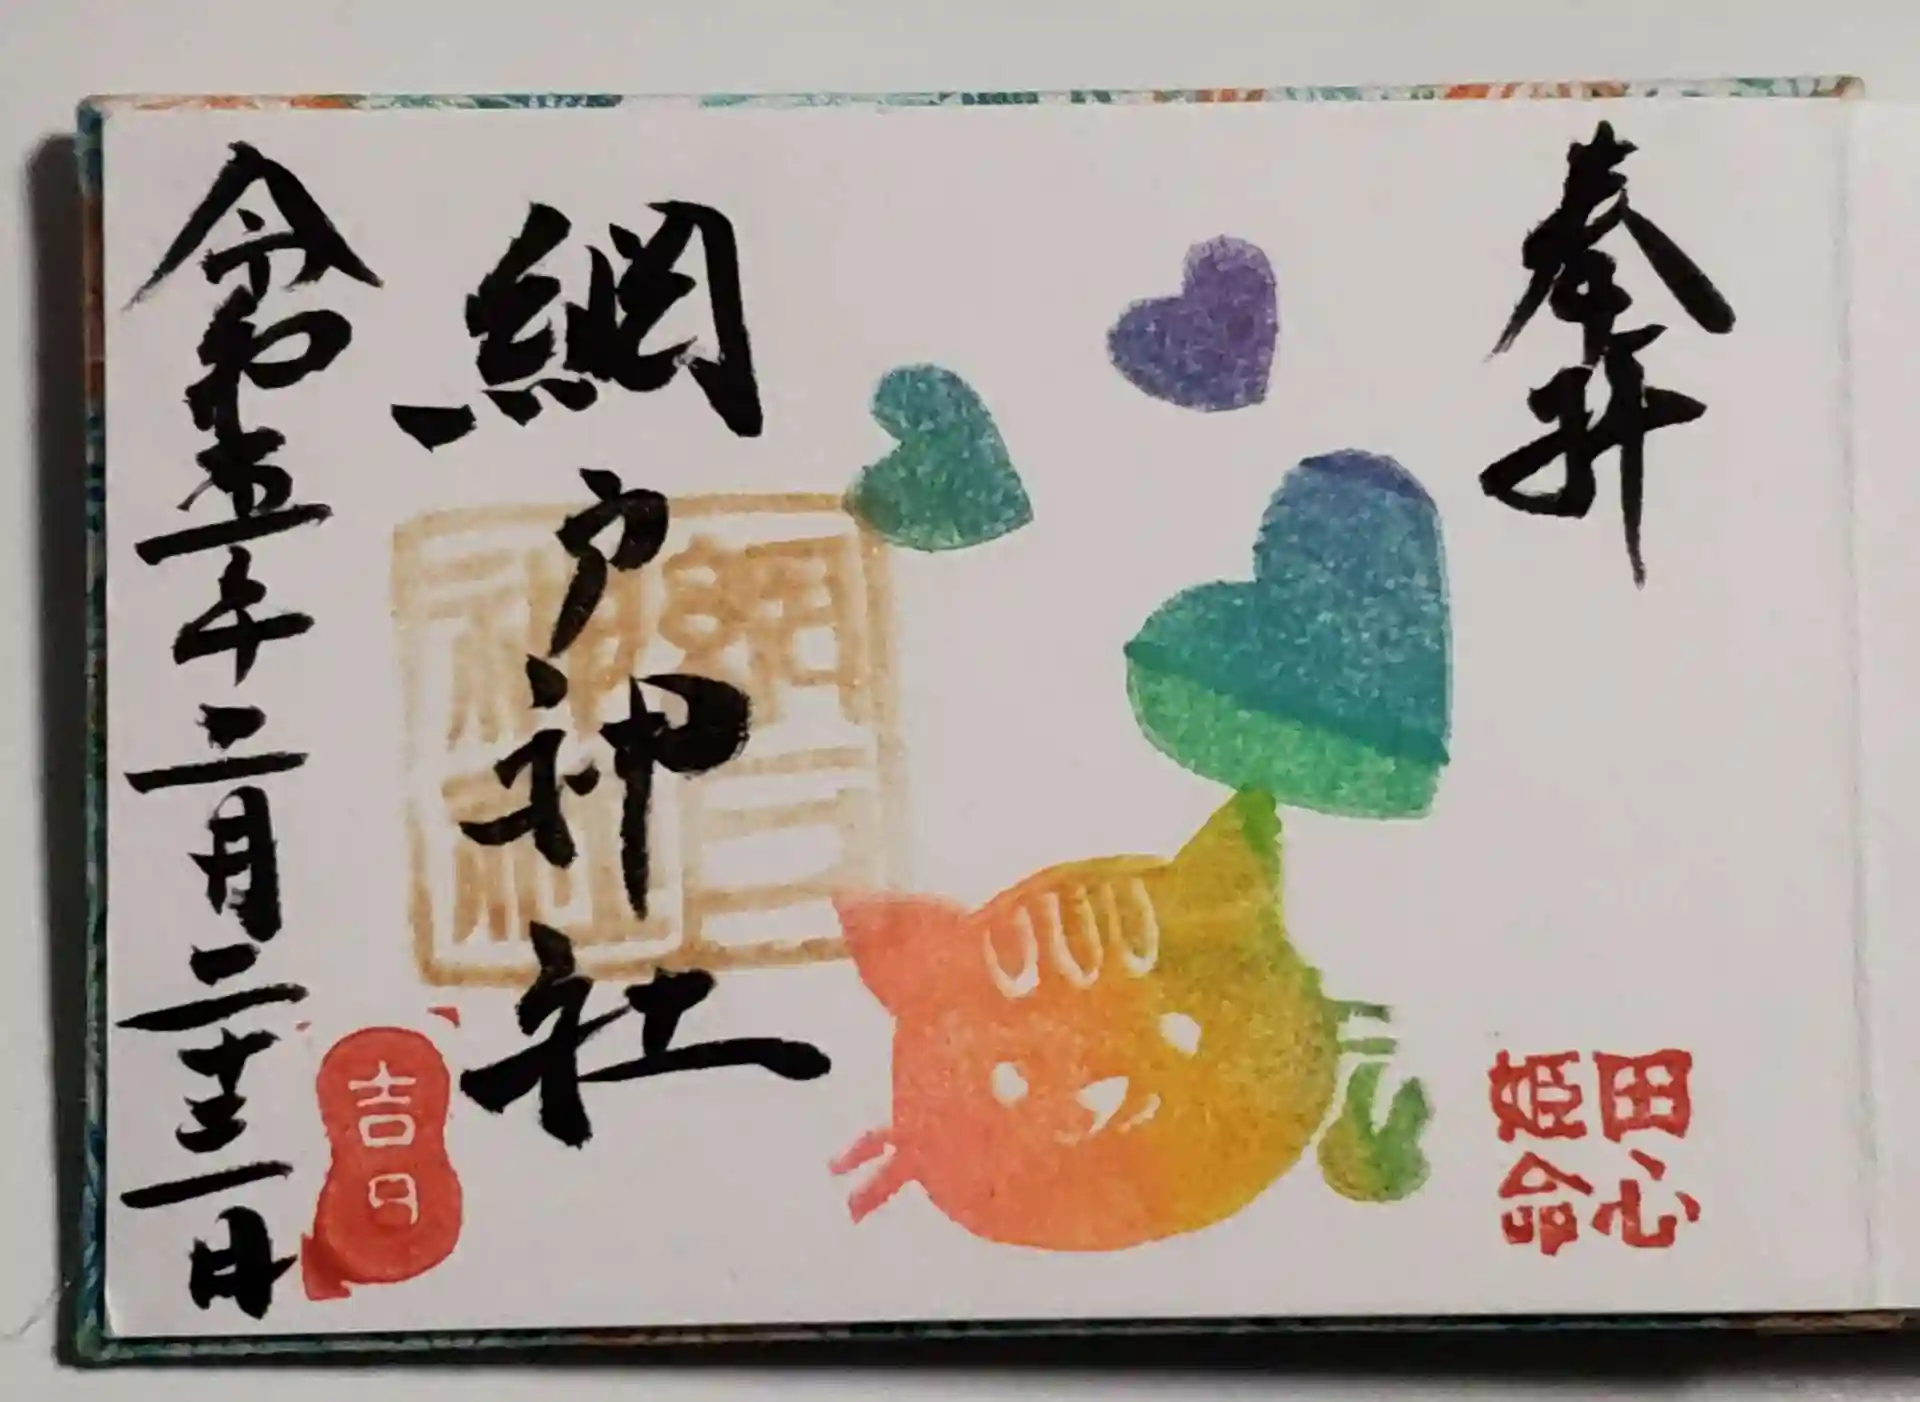 奉拝
田心
姫命
網戸神社
網戸
神社
令和五年二月二十二日
吉日